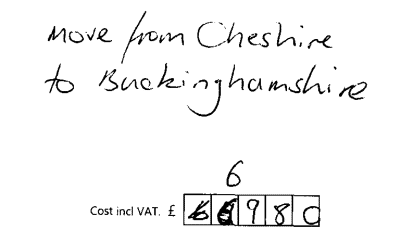 Move from Cheshire
to Buckinghamshire
6
Cost incl VAT. £ 6 6 9 8 0